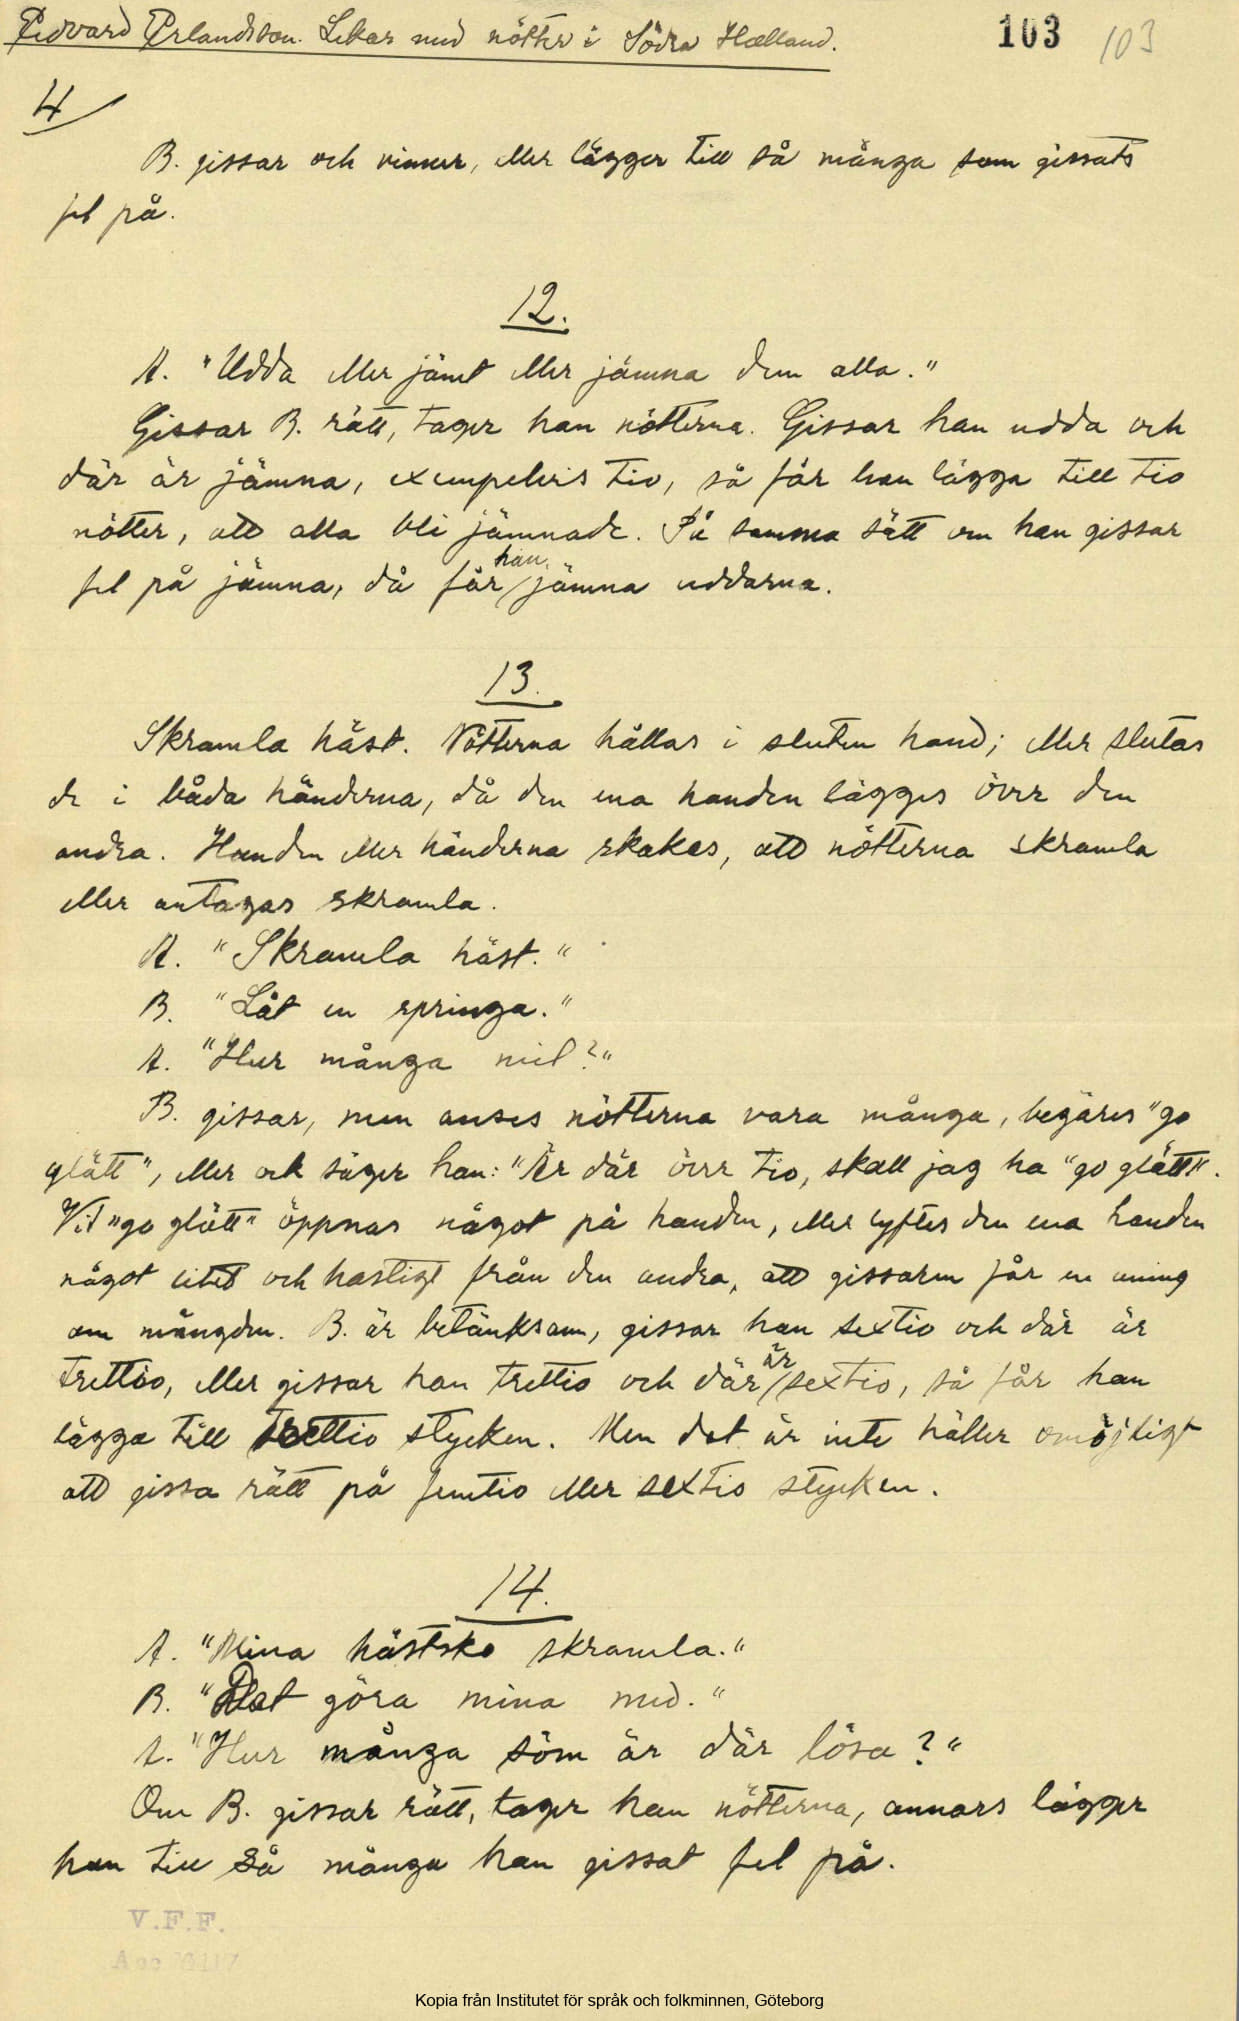 Edvard Erlandsson. Lekar med nötter i Södra Halland.
103 103
4
B. gissar och vinner, eller lägger till så många som gissats
fel på.
12.
A. "Udda eller jämt eller jämna dem alla."
Gissar B. rätt, tager han nötterna. Gissar han udda och
där är jämna, exempelvis tio, så får han lägga till tio
nötter, att alla bli jämnade. På samma sätt om han gissar
fel på jämna, då får han jämna uddarna.
13.
Skramla häst. Nötterna hållas i sluten hand; eller slutas
de i båda händerna, då den ena handen lägges över den
andra. Handen eller händerna skakas, att nötterna skramla
eller antagas skramla.
A. "Skramla häst."
B. "Låt en springa."
A. "Hur många mil?"
B. gissar, men anses nötterna vara många, begäres "go
glätt", eller ock säger han: "Är där över tio, skall jag ha "go glätt".
Vid "go glätt" öppnas något på handen, eller lyftes den ena handen
något litet och hastigt från den andra, att gissaren får en aning
om mängden. B. är betänksam, gissar han sextio och där är
trettio, eller gissar han trettio och där är sextio, så får han
lägga till trettio stycken. Men det är inte häller omöjligt
att gissa rätt på femtio eller sextio stycken.
14.
A. "Mina hästsko skramla."
B. "Det göra mina med."
A. "Hur många söm är där lösa?"
Om B. gissar rätt, tager han nötterna, annars lägger
han till så många han gissat fel på.
V.F.F.
Kopia från Institutet för språk och folkminnen, Göteborg